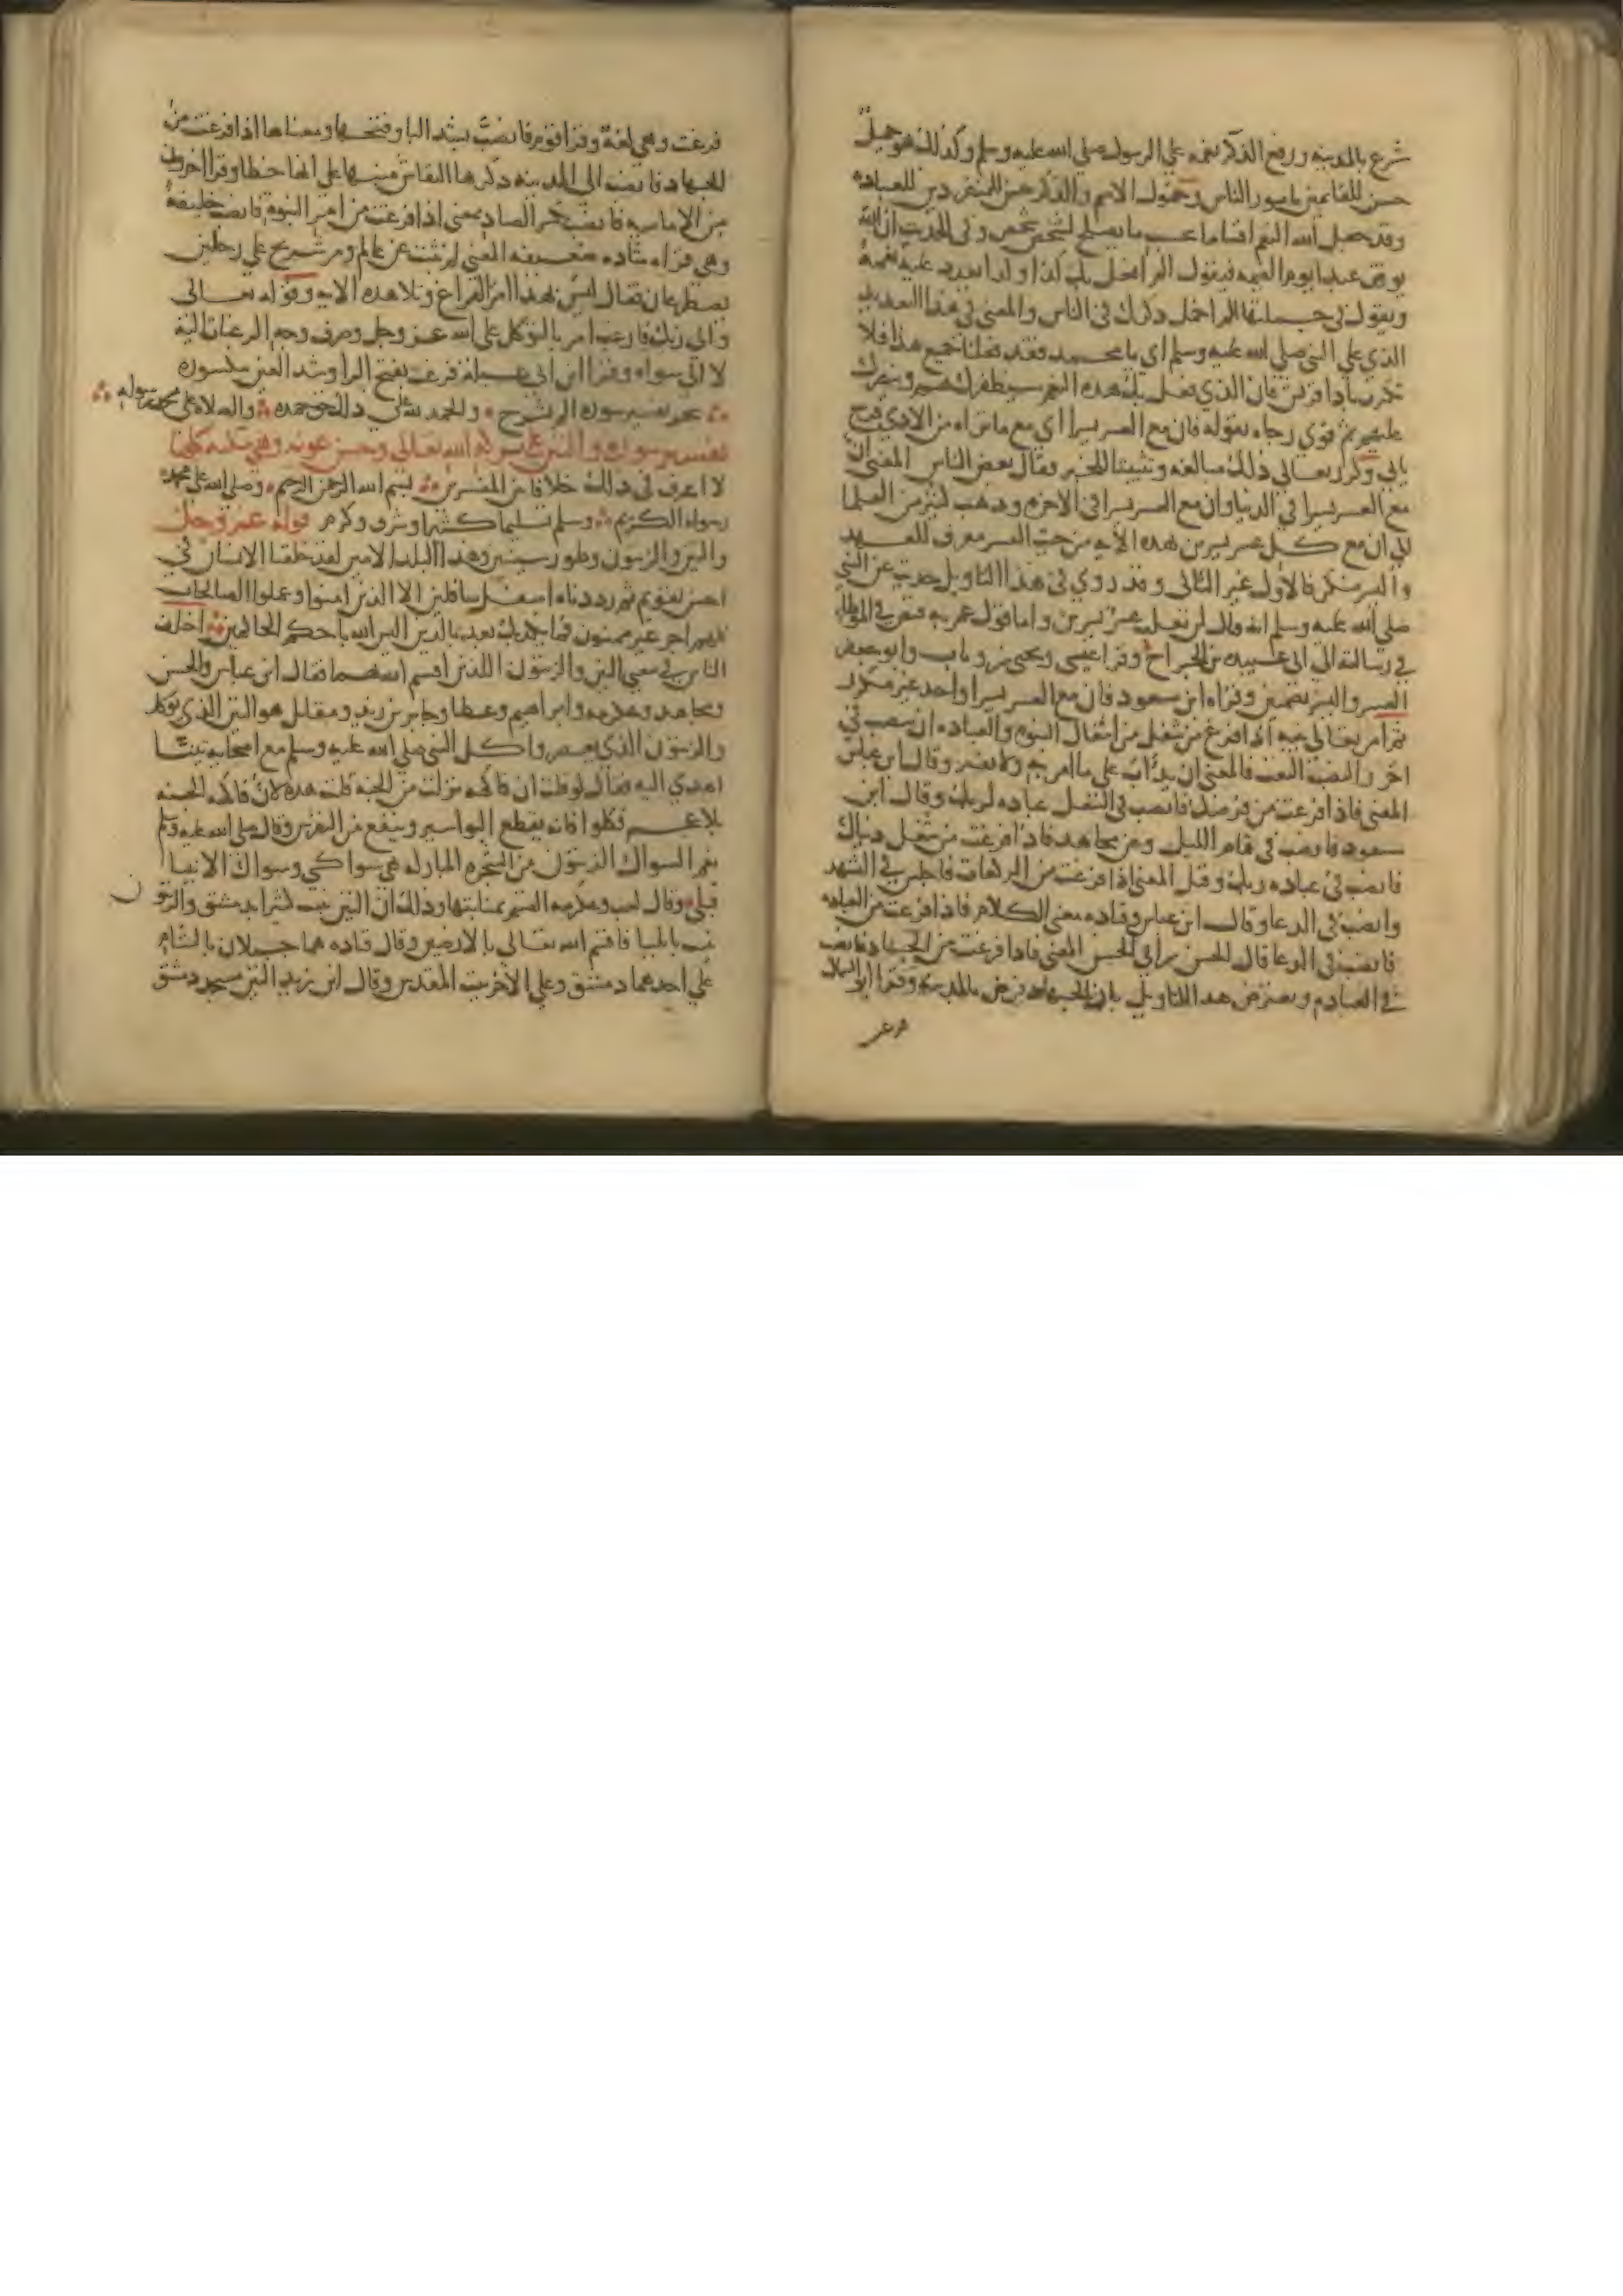 شرع بالمدينه ورفع الذكر نعمه على الرسول صلى الله عليه وسلم وكذلك هو جميل
حسن للقائمين بامور الناس وخمول الاسم والذكر حسن للمنفردين للعباده
وقد جعل الله النعم اقساما بحسب ما يصلح لشخص شخص وفي الحديث ان الله
يوقف عبدا يوم القيمه فيقول الم افعل بك كذا وكذا يعدد عليه نعمه
ويقول في جملتها الم اخمل ذكرك في الناس والمعنى في هذا التعديد
الذي على النبي صلى الله عليه وسلم اي يا محمد فقد فعلنا جميع هذا فلا
تكترث باذا قريش فان الذي فعل بك هذه النعم سيظفرك بهم وينصرك
عليهم ثم قوي رجاه بقوله فان مع العسر يسرا اي مع ما تراه من الاذي فرج
ياتي وكرر تعالى ذلك مبالغه وتثبيتا للخير وقال بعض الناس المعنى ان
مع العسر يسرا في الدنيا وان مع العسر يسرا في الاخره وذهب كثير من العلما
الي ان مع كل عسر يسرين بهذه الايه من حيث العسر معرف للعهد
واليسر منكر فالاول غير الثاني وقد روي في هذا التاويل حديث عن النبي
صلى الله عليه وسلم انه قال لن يغلب عسر يسرين واما قول عمر به فنص في الموطا
في رسالته الى ابي عبيده بن الجراح وقرا عيسى ويحيى بن وثاب وابو جعفر
العسر واليسر بضمتين وقراه ابن مسعود فان مع العسر يسرا واحد غير مكرر
ثم امر تعالى نبيه اذا فرغ من شغل من اشغال النبوه والعباده ان ينصب في
اخر والنصب التعب فالمعنى ان يدأب على ما امر به ولا يفتر وقال ابن عباس
المعنى فاذا فرغت من فرضك فانصب في النفل عباده لربك وقال ابن
مسعود فانصب في قيام الليل وعن مجاهد فاذا فرغت من شغل دنياك
فانصب في عباده ربك وقيل المعنى اذا فرغت من الركعات فاجلس في التشهد
وانصب في الدعا وقال ابن عباس وقتاده معنى الكلام فاذا فرغت من العباده
فانصب في الدعا قال الحسن بن ابي الحسن المعنى فاذا فرغت من الجهاد فانصب
في العباده ويعترض هذا التاويل بان الجهاد فرض بالمدينه وقرا ابو السمال
فرغت
فرغت وهي لغة وقرا قوم فانصبَّ بشد البا وفتحها ومعناها اذا فرغت من
الجهاد فانصب الى المدينه ذكرها النقاش منبها على انها خطا وقرا اخرون
من الاماميه فانصب بكسر الصاد بمعنى اذا فرغت من امر النبوه فانصب خليفة
وهي قراه شاذه ضعيفه المعنى لم تثبت عن عالم ومر شريح على رجلين
يصطرعان فقال ليس بهذا امر الفراغ وتلا هذه الايه وقوله تعالى
والى ربك فارغب امر بالتوكل على الله عز وجل وصرف وجه الرغبات اليه
لا الى سواه وقرا ابن ابي عبله فرغب بفتح الرا وشد الغين مكسوره
نجز تفسير سوره الم نشرح والحمد لله على ذلك حق حمده والصلاة على محمد رسوله
تفسير سوره والتين على بركه الله تعالى وحسن عونه وهي مكيه كلها
لا اعرف في ذلك خلافا بين المفسرين بسم الله الرحمن الرحيم وصلى الله على محمد
رسوله الكريم وسلم تسليما كثيرا وشرف وكرم قوله عز وجل
والتين والزيتون وطور سينين وهذا البلد الامين لقد خلقنا الانسان في
احسن تقويم ثم رددناه اسفل سافلين الا الذين امنوا وعملوا الصالحات
فلهم اجر غير ممنون فما يكذبك بعد بالدين اليس الله باحكم الحاكمين اختلف
الناس في معنى التين والزيتون اللذين اقسم الله بهما فقال ابن عباس والحسن
ومجاهد وعكرمه وابراهيم وعطا وجابر بن زيد ومقاتل هو التين الذي يوكل
والزيتون الذي يعصر واكل النبي صلى الله عليه وسلم مع اصحابه تينا
اهدي اليه فقال لو قلت ان فاكهه نزلت من الجنه قلت هذه لان فاكهه الجنه
بلا عجم فكلوا فانه يقطع البواسير وينفع من النقرس وقال صلى الله عليه وسلم
نعم السواك الزيتون من الشجره المباركه هي سواكي وسواك الانبيا
قبلي وقال كعب وعكرمه القسم بمنابتها وذلك ان التين ينبت كثيرا بدمشق والزيتو
ن
نب بايليا فاقسم الله تعالى بالارضين وقال قتاده هما جبلان بالشام
على احدهما دمشق وعلى الاخر بيت المقدس وقال ابن زيد التين مسجد دمشق